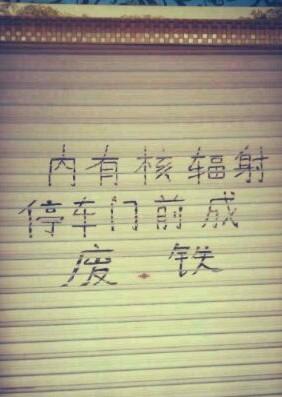 内有核辐射
停车门前成
废铁